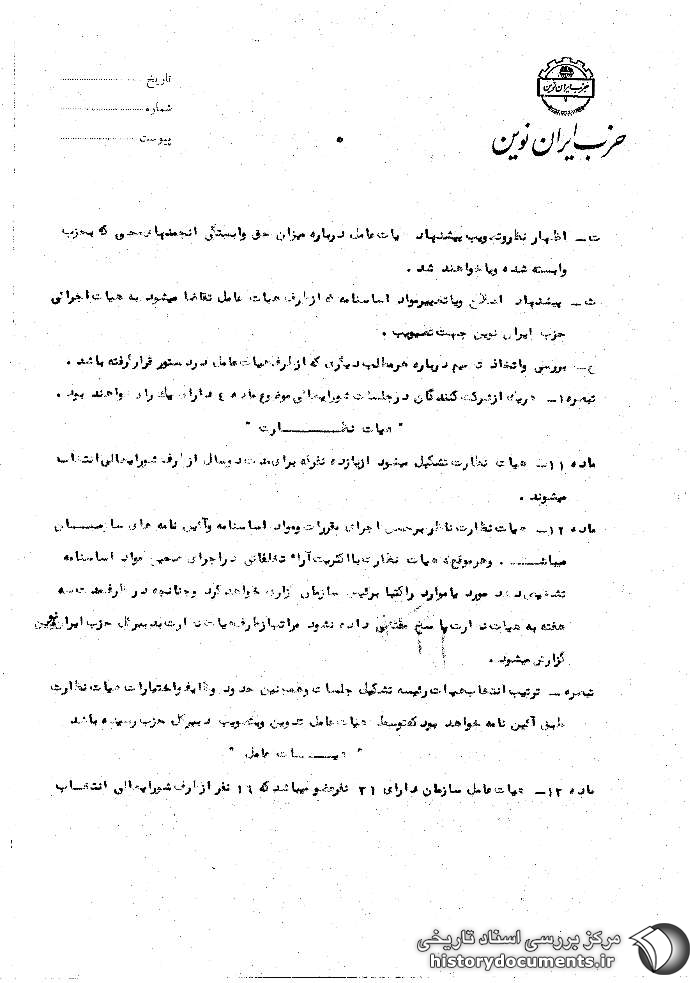 حزب ایران نوین
حزب ایران نوین
تاریخ
شماره
پیوست
ت ـ اظهار نظر و تصویب پیشنهاد هیات عامل درباره میزان حق وابستگی انجمنهای محلی که بحزب
وابسته شده و یا خواهند شد .
ث ـ پیشنهاد اصلاح و یا تغییر مواد اساسنامه که از طرف هیات عامل تقاضا میشود به هیات اجرائی
حزب ایران نوین جهت تصویب .
ج ـ بررسی و اتخاذ تصمیم درباره هر مطالب دیگری که از طرف هیات عامل در دستور قرار گرفته باشد .
تبصره ۱ ـ هریک از شرکت کنندگان در جلسات شورایعالی موضوع ماده ٤ دارای یک رای خواهند بود .
" هیات نظـــــــارت "
ماده ۱۱ ـ هیات نظارت تشکیل میشود از یازده نفر که برای مدت دو سال از طرف شورایعالی انتخاب
میشوند .
ماده ۱۲ ـ هیات نظارت ناظر بر حسن اجرای مقررات و مواد اساسنامه و آئین نامه های سازمـــــان
میباشـــــــد . و هر موقع که هیات نظارت با اکثریت آراء تخلفاتی در اجرای صحیح مواد اساسنامه
تشخیص داد مورد یا موارد را کتبا برئیس سازمان گزارش خواهد کرد و چنانچه در ظرف مدت سه
هفته به هیات نظارت پاسخ مقتضی داده نشود مراتب از طرف هیات نظارت به دبیرکل حزب ایران نوین
گزارش میشود .
تبصره ـ ترتیب انتخاب هیات رئیسه تشکیل جلسات و همچنین حدود وظایف و اختیارات هیات نظارت
طبق آئین نامه خواهد بود که توسط هیات عامل تدوین و بتصویب دبیرکل حزب رسیده باشد
" هیـــــــات عامل "
ماده ۱۳ ـ هیات عامل سازمان دارای ۲۱ نفر عضو میباشد که ۱۶ نفر از طرف شورایعالی انتخـــاب
مرکز بررسی اسناد تاریخی
historydocuments.ir